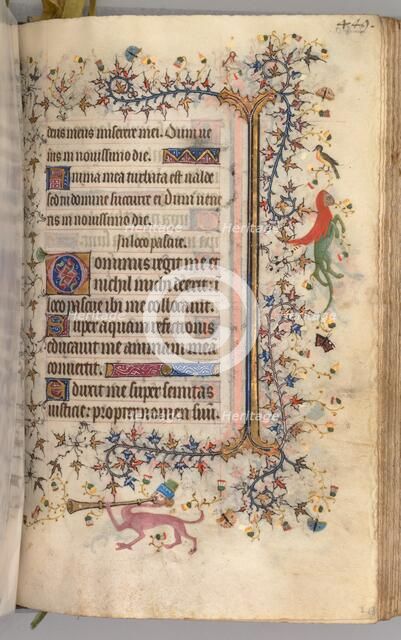 449.
deus meus miserere mei. Dum ne
ris in novissimo die.
Anima mea turbata est valde
sed tu domine succurre ei Dum vene
ris in novissimo die.
In loco pascue.
Dominus regit me et
nichil michi deerit in
loco pascue ibi me collocavit.
Super aquam refectionis
educavit me animam mea
convertit.
Deduxit me super semitas
iusticie: propter nomen suu.
Heritage
Heritage
Heritage
Heritage
Heritage
Heritage